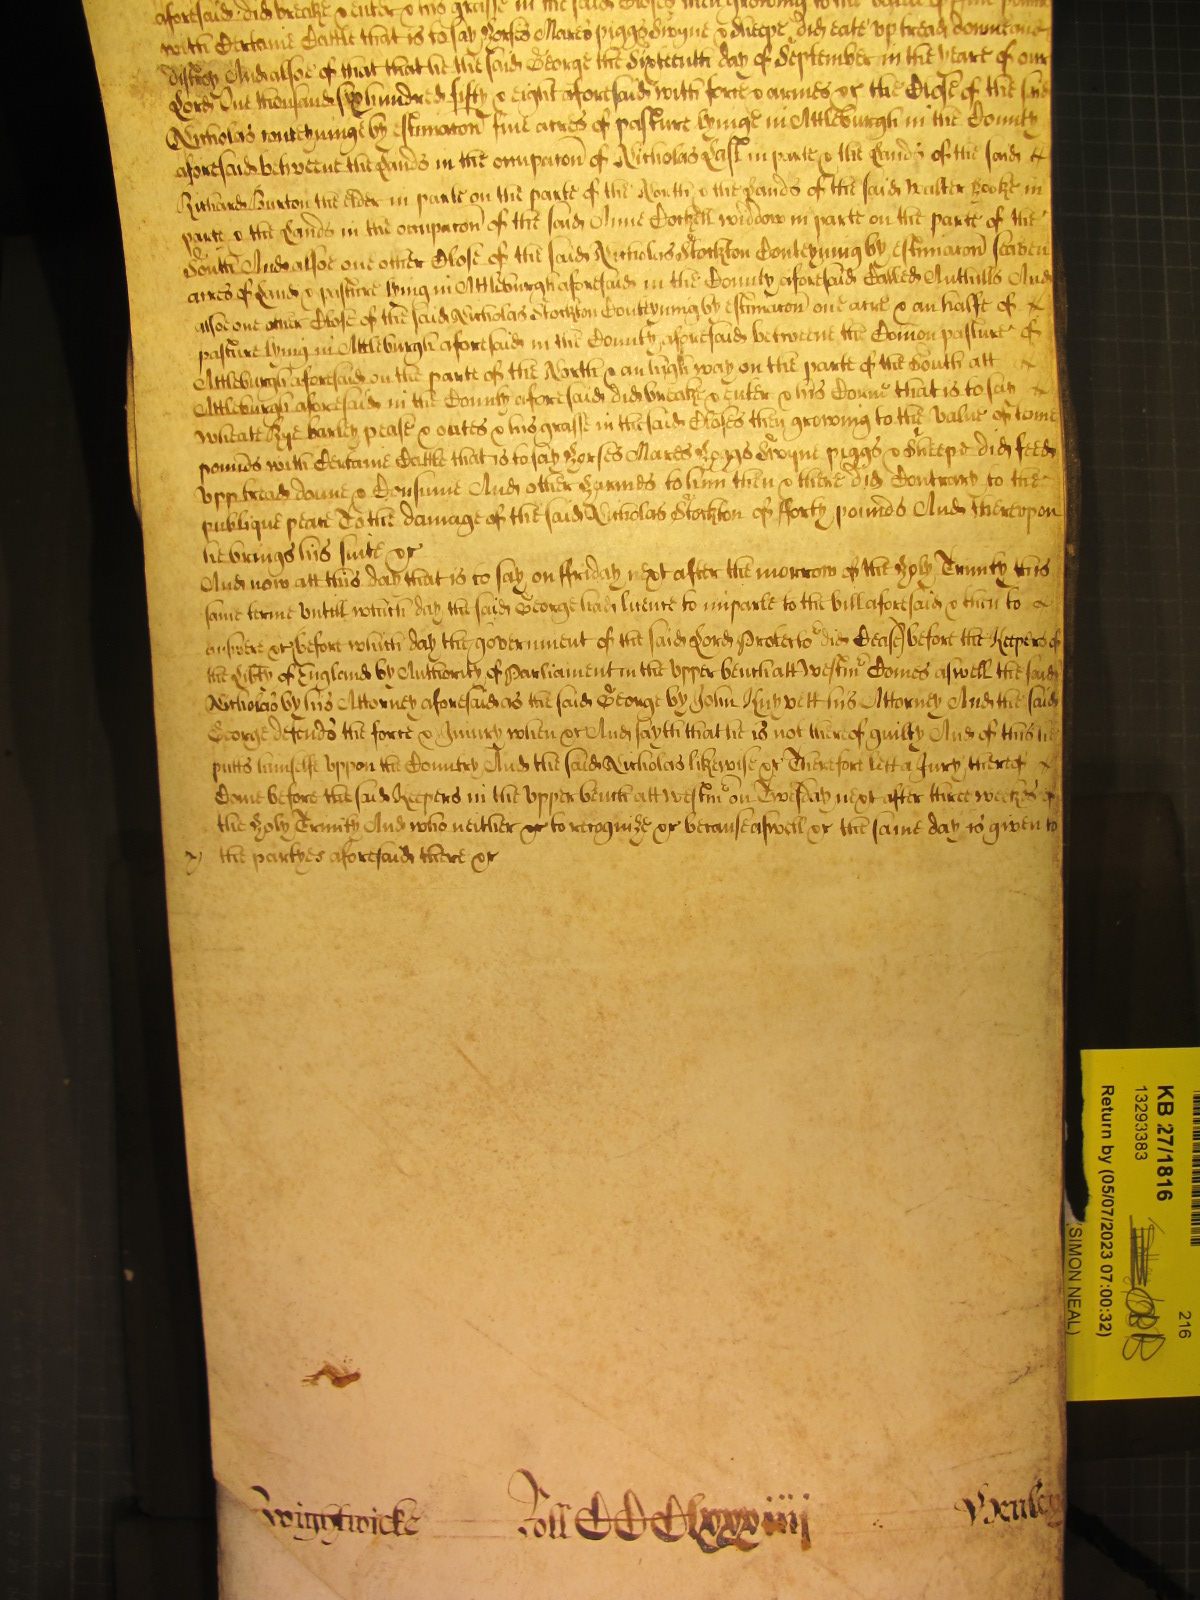 aforesaid did breake & enter & his grasse in the said Closes then growing to the value of five pounds
with Certaine Cattle that is to say Horses Mares piggs Swyne & Sheepe did eate vp tread downe and
distroy And alsoe of that that he the said George the Sixteenth day of September in the yeare of our
Lord One thousand six hundred fifty & eight aforesaid with force & armes &c the Close of the said
Nicholas conteyninge by estimacon five acres of pasture lyinge in Attleburgh in the County
aforesaid betweene the Lands in the occupacon of Nicholas Last in parte & the Lands of the said
Richard Burton the elder in parte on the parte of the North & the Lands of the said Walter Cooke in
parte & the Lands in the occupacon of the said Anne Cockell widdow in parte on the parte of the
South And alsoe one other Close of the said Nicholas Stockton Conteyning by estimacon seaven
acres of Land & pasture lying in Attleburgh aforesaid in the County aforesaid Called Anthills And
alsoe one other Close of the said Nicholas Stockton Conteyning by estimacon one acre & an halfe of
pasture lying in Attleburgh aforesaid in the County aforesaid betweene the Comon pasture of
Attleburgh aforesaid on the parte of the North & an high way on the parte of the South att
Attleburgh aforesaid in the County aforesaid did breake & enter & his Corne that is to say
wheate Rye barley pease & oates & his grasse in the said Closes then growing to the value of tenne
pounds with Certaine Cattle that is to say Horses Mares Hoggs Swyne piggs & Sheepe did feed
vpp tread downe & Consume And other Harmes to him then & there did Contrary to the
publique peace To the damage of the said Nicholas Stockton of fforty pounds And therevpon
he brings his suite &c
And now att this day that is to say on ffriday next after the morrow of the Holy Trinity this
same terme vntill which day the said George had licence to imparle to the bill aforesaid & then to
answere &c before which day the government of the said Lord Protector did Cease before the Keepers of
the Libty of England by Authority of Parliament in the vpper bench att Westm Comes aswell the said
Nicholas by his Attorney aforesaid as the said George by John Knyvett his Attorney And the said
George defends the force & Iniury when &c And sayth that he is not thereof guilty And of this he
putts himselfe vppon the Country And the said Nicholas likewise &c Therefore lett a Jury thereof
Come before the said Keepers in the vpper bench att Westm on Twesday next after three weekes of
the Holy Trinity And who neither &c to recognize &c because aswell &c the same day is given to
the partyes aforesaid there &c
Wightwicke Roll CCClxxxiiii Henley
KB 27/1816
13293383
Return by (05/07/2023 07:00:32)
216
SIMON NEAL)